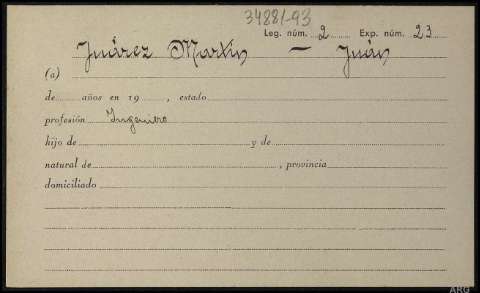 34881-93
Leg. núm. 2 Exp. núm. 23
Juárez Martín — Juán
(a)
de años en 19 , estado
profesión Ingeniero
hijo de y de
natural de , provincia
domiciliado
ARG